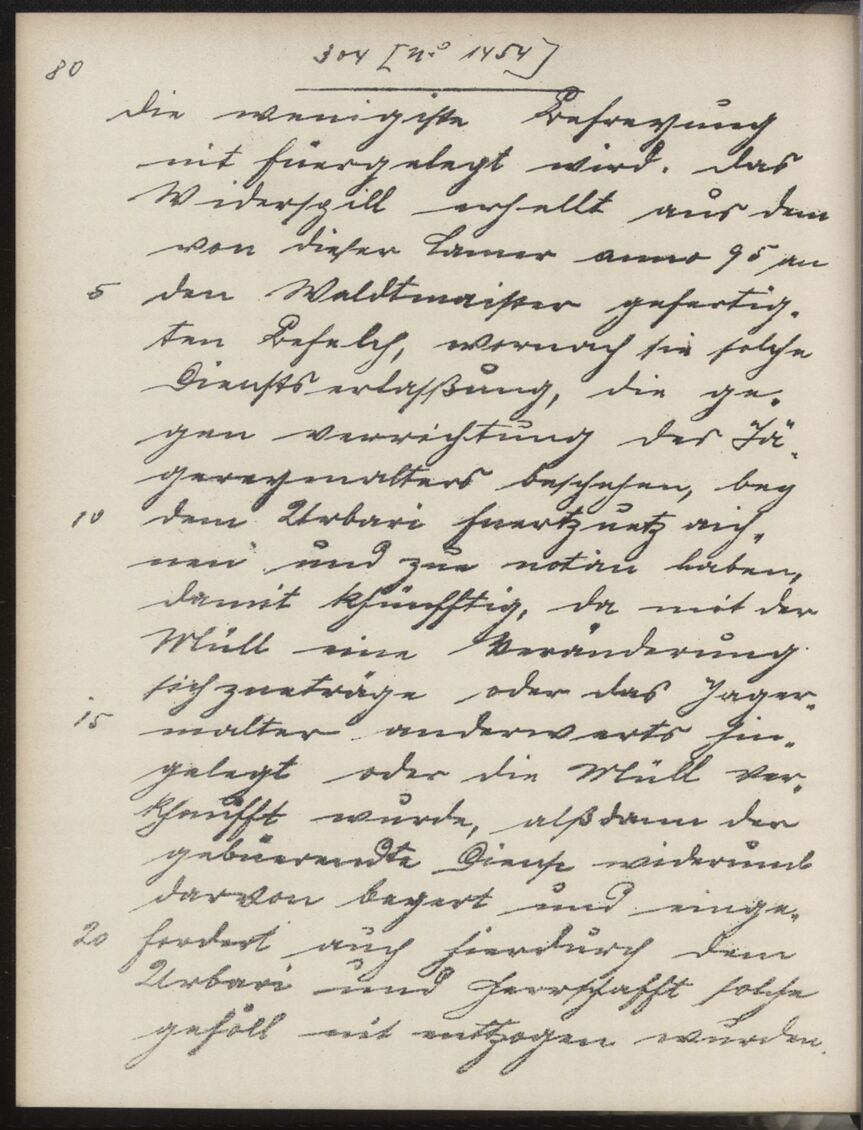 80
304 [No 1454]
die wenigiste Befreyung
nit füergelegt wird. Das
Widerspill erhellt aus dem
von dieser Camer anno 95 an
5 den Waldtmaister gefertig-
ten Befelch, wornach sie solche
Diensts erlassßung, die ge-
gen verrichtung des Jä-
gereymalters beschehen, bey
10 dem Urbari fuertzuetzaich-
nen und zue notiern haben,
damit khünfftig, da mit der
Müll eine Veränderung
sich zueträge oder das Jager-
15 malter anderwerts hin-
gelegt oder die Müll ver-
khaufft wurde, alßdann der
gebüerendte Dienst widerumb
darvon begert und einge-
20 fordert auch hierdurch dem
Urbari und Herrschafft solche
geföll nit enttzogen wurden.